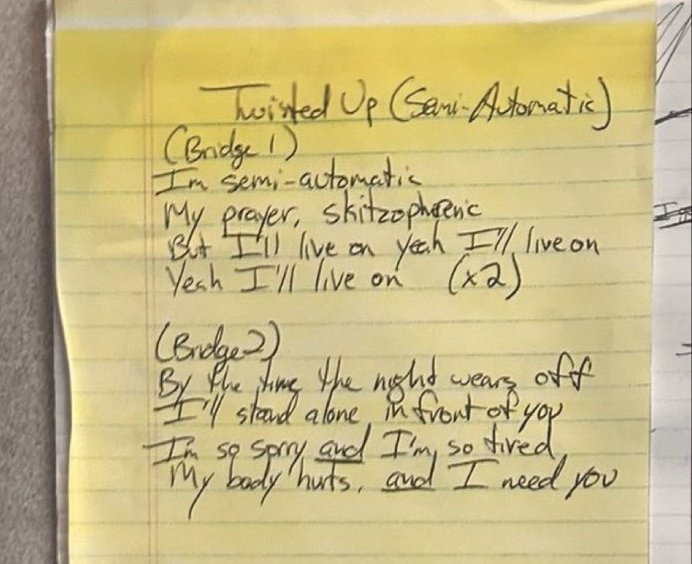 Twisted Up (Semi-Automatic)
(Bridge 1)
Im semi-automatic
My prayer, skitzophrenic
But I'll live on yeah I'll live on
Yeah I'll live on (x2)
(Bridge 2)
By the time the night wears off
I'll stand alone in front of you
I'm so sorry and I'm so tired
My body hurts, and I need you